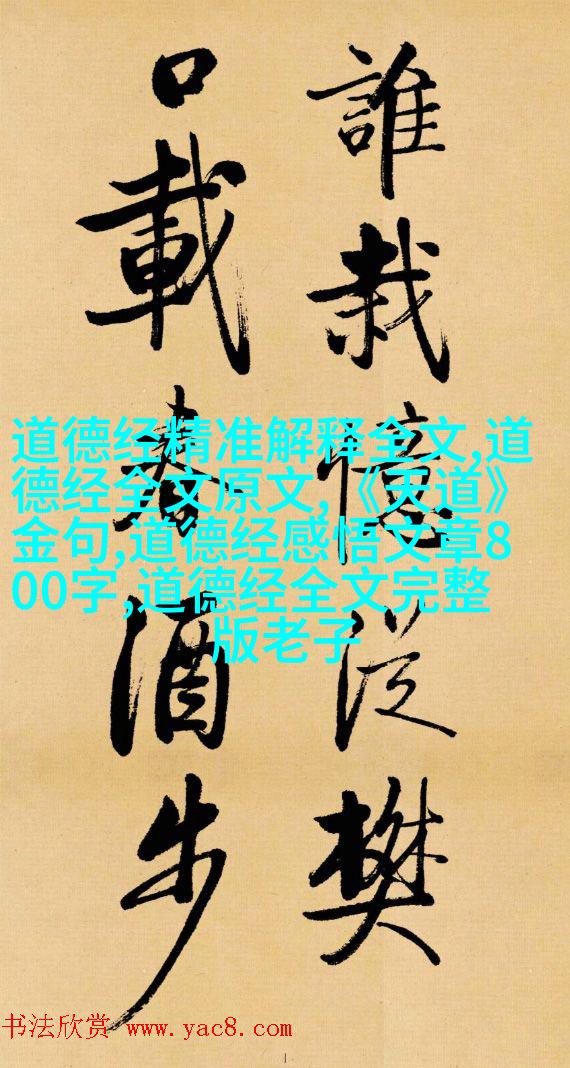 誰栽憶從樊
口載春酒步
道德经精准解释全文,道
德经全文原文,《天道》
金句,道德经感悟文章8
00字,道德经全文完整
版老子
书法欣赏 www.yac8.com